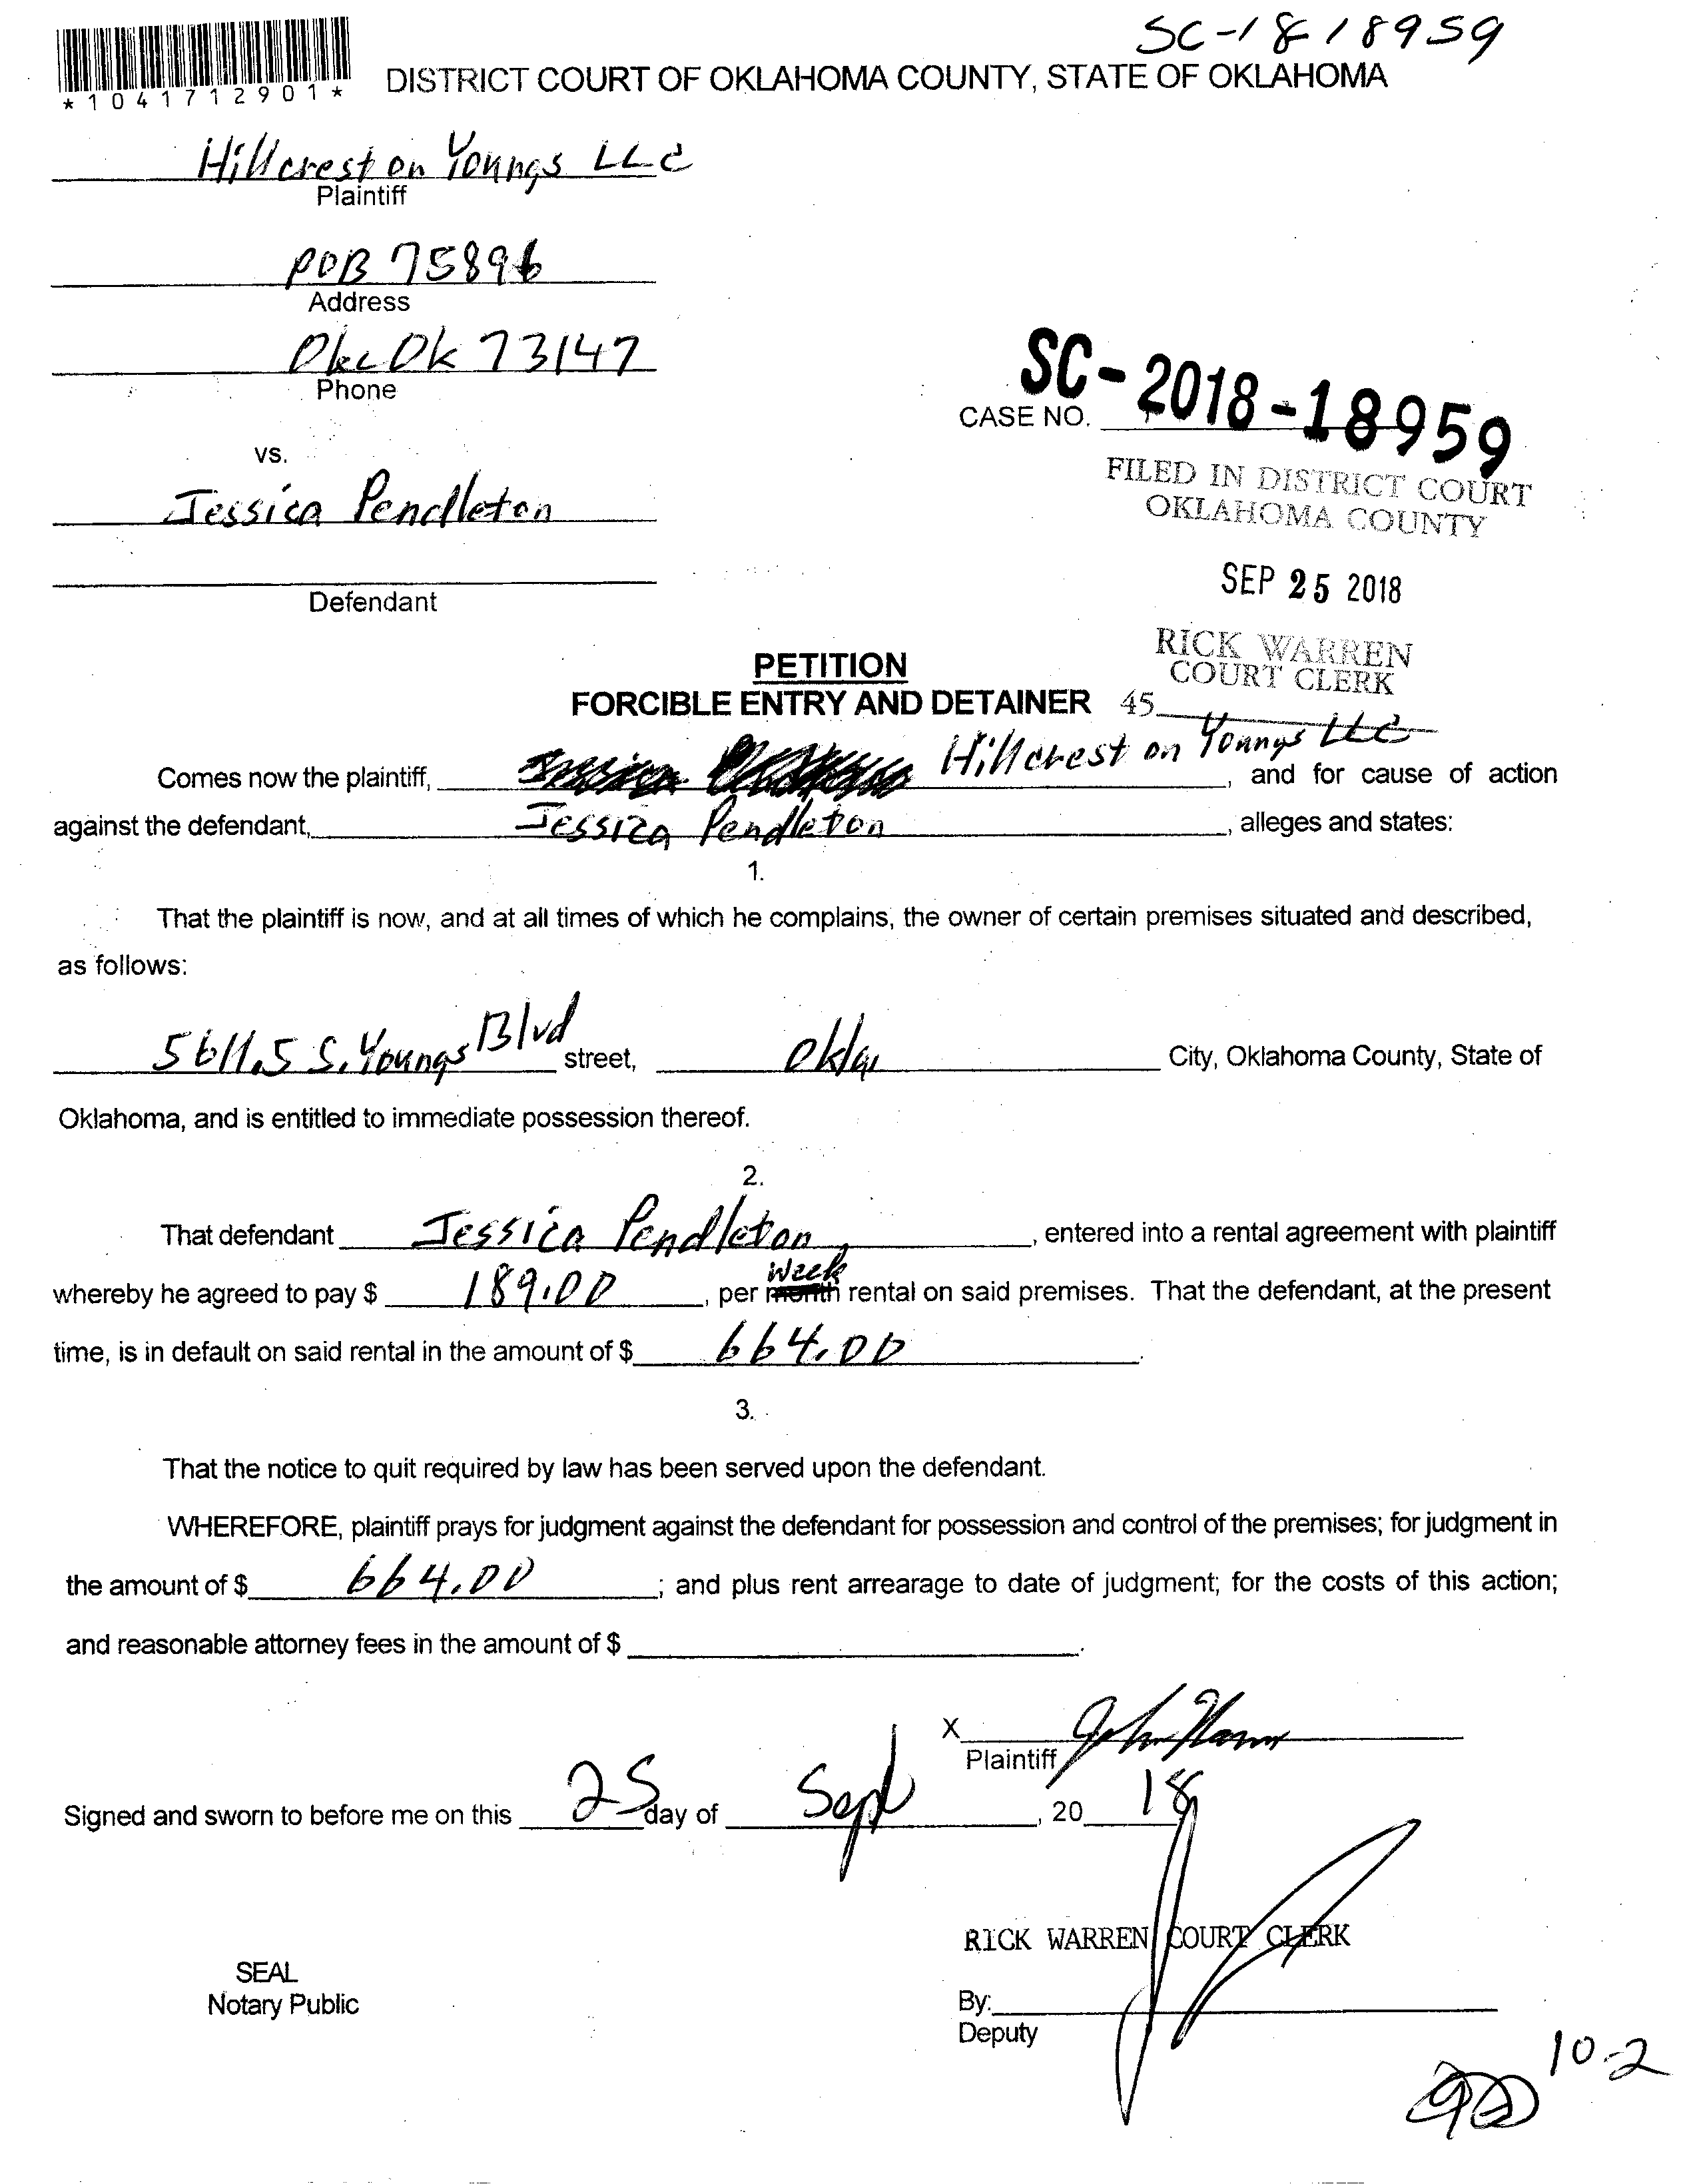 SC-18 18959
*1041712901*
DISTRICT COURT OF OKLAHOMA COUNTY, STATE OF OKLAHOMA
Hillcrest on Youngs LLC
Plaintiff
POB 75896
Address
Okc Ok 73147
Phone
SC-2018-18959
CASE NO.
vs.
FILED IN DISTRICT COURT
OKLAHOMA COUNTY
Jessica Pendleton
SEP 25 2018
Defendant
RICK WARREN
COURT CLERK
PETITION
FORCIBLE ENTRY AND DETAINER 45
Comes now the plaintiff, Hillcrest on Youngs LLC, and for cause of action
against the defendant, Jessica Pendleton, alleges and states:
1.
That the plaintiff is now, and at all times of which he complains, the owner of certain premises situated and described,
as follows:
5611.5 S. Youngs Blvd street, Okla City, Oklahoma County, State of
Oklahoma, and is entitled to immediate possession thereof.
2.
That defendant Jessica Pendleton, entered into a rental agreement with plaintiff
Week
whereby he agreed to pay $ 189.00, per month rental on said premises. That the defendant, at the present
time, is in default on said rental in the amount of $ 664.00.
3.
That the notice to quit required by law has been served upon the defendant.
WHEREFORE, plaintiff prays for judgment against the defendant for possession and control of the premises; for judgment in
the amount of $ 664.00; and plus rent arrearage to date of judgment; for the costs of this action;
and reasonable attorney fees in the amount of $ .
X John
Plaintiff
Signed and sworn to before me on this 25 day of Sept, 20 18
RICK WARREN COURT CLERK
SEAL
Notary Public
By:
Deputy
10-2